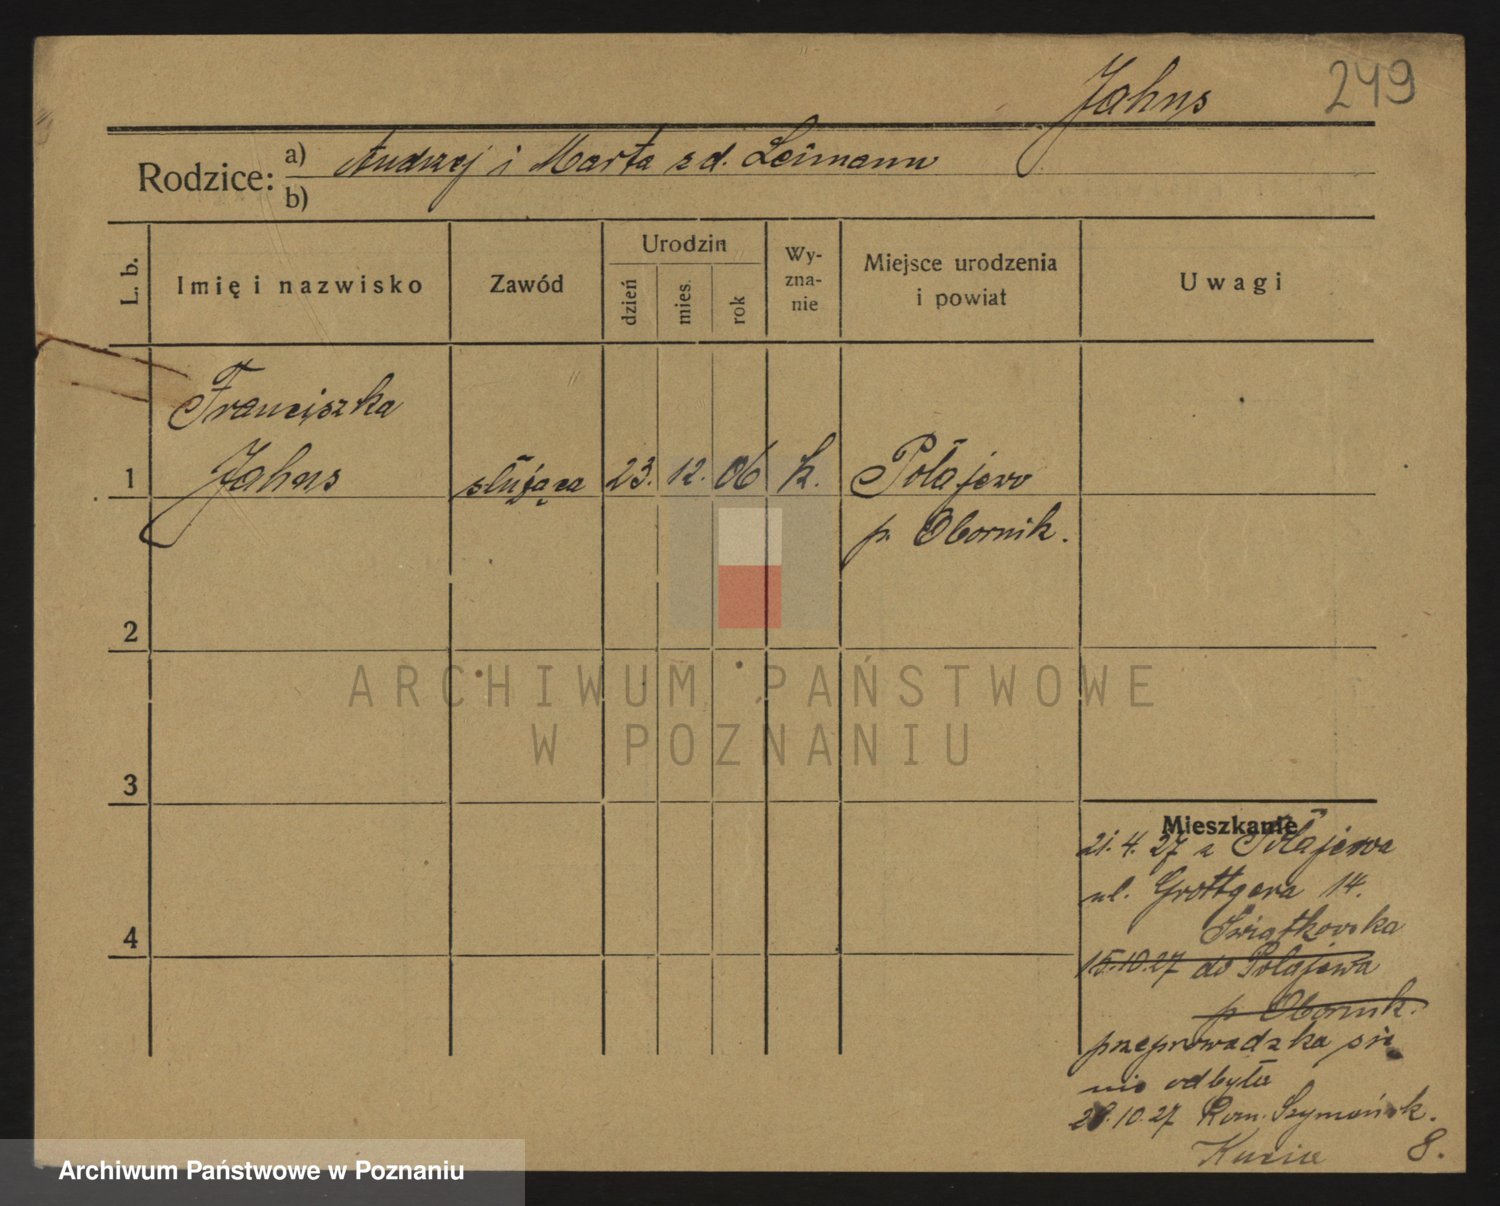 Jahns 249
Rodzice: a) Andrzej i Marta z d. Leimann
b)
L. b. Imię i nazwisko Zawód Urodzin dzień mies. rok Wyznanie Miejsce urodzenia i powiat Uwagi
Franciszka
1 Jahns służąca 23. 12. 06 k. Połajewo
p. Obornik.
2
ARCHIWUM PAŃSTWOWE
W POZNANIU
3
Mieszkanie
21. 4. 27 z Połajewa
ul. Grottgera 14.
Świątkowska
4
15.10.27 do Połajewa
p. Obornik.
przeprowadzka się
nie odbyła
28.10.27 Rom. Szymańsk.
8.
Archiwum Państwowe w Poznaniu